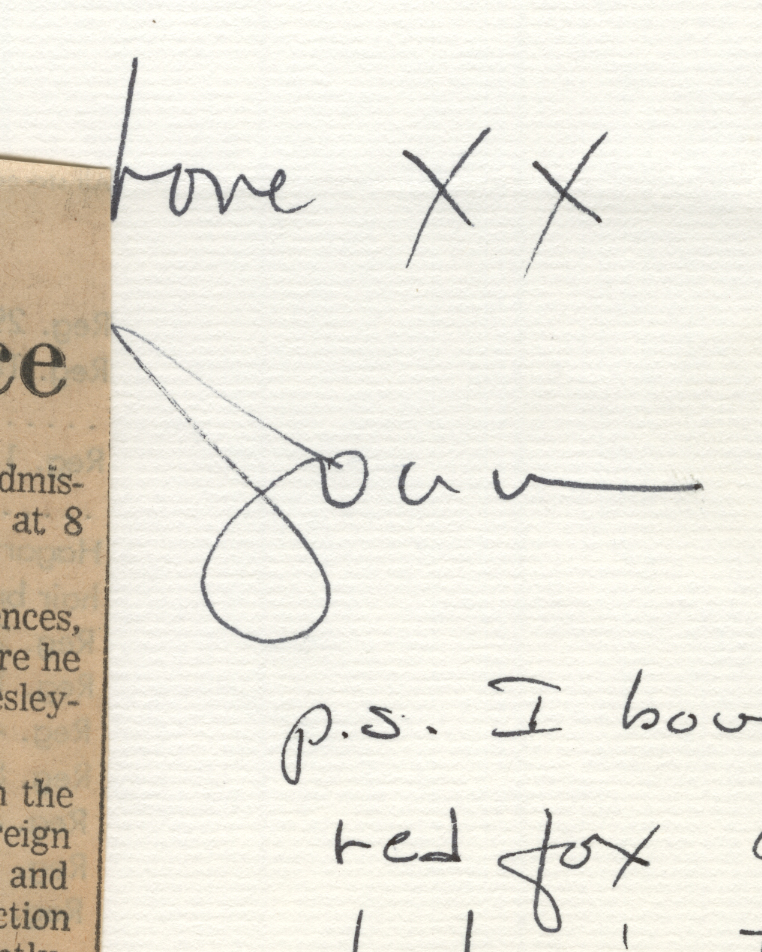 Love XX
ce
Joan
dmis-
at 8
ences,
re he
esley-
p.s. I bou
n the
red fox
reign
and
ction